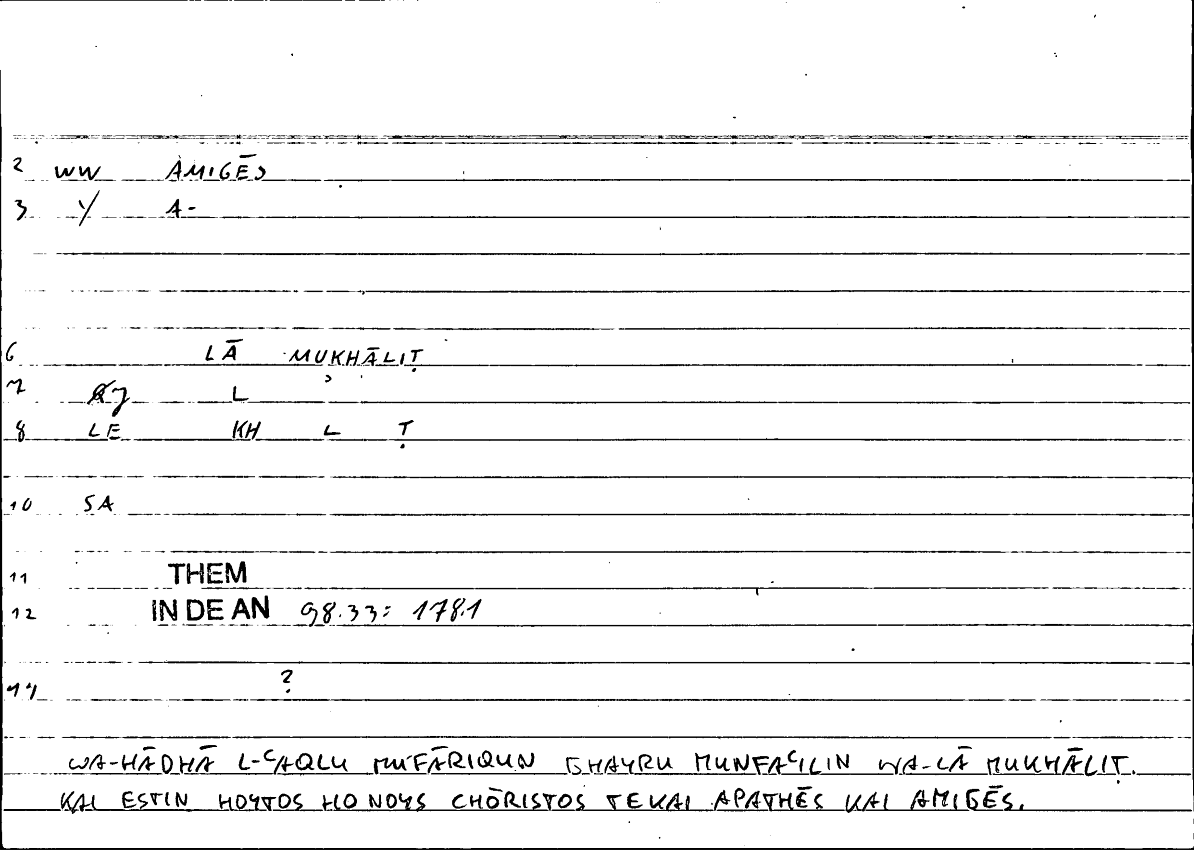 2 WW AMIGĒS
3 Y A-
6 LĀ MUKHĀLIṬ
7 L
8 LE KH L Ṭ
10 SA
11 THEM
12 IN DE AN 98.33: 178.1
14 ?
WA-HĀDHĀ L-ʿAQLU MUFĀRIQUN GHAYRU MUNFAʿILIN WA-LĀ MUKHĀLIṬ.
KAI ESTIN HOYTOS HO NOYS CHŌRISTOS TE KAI APATHĒS KAI AMIGĒS.